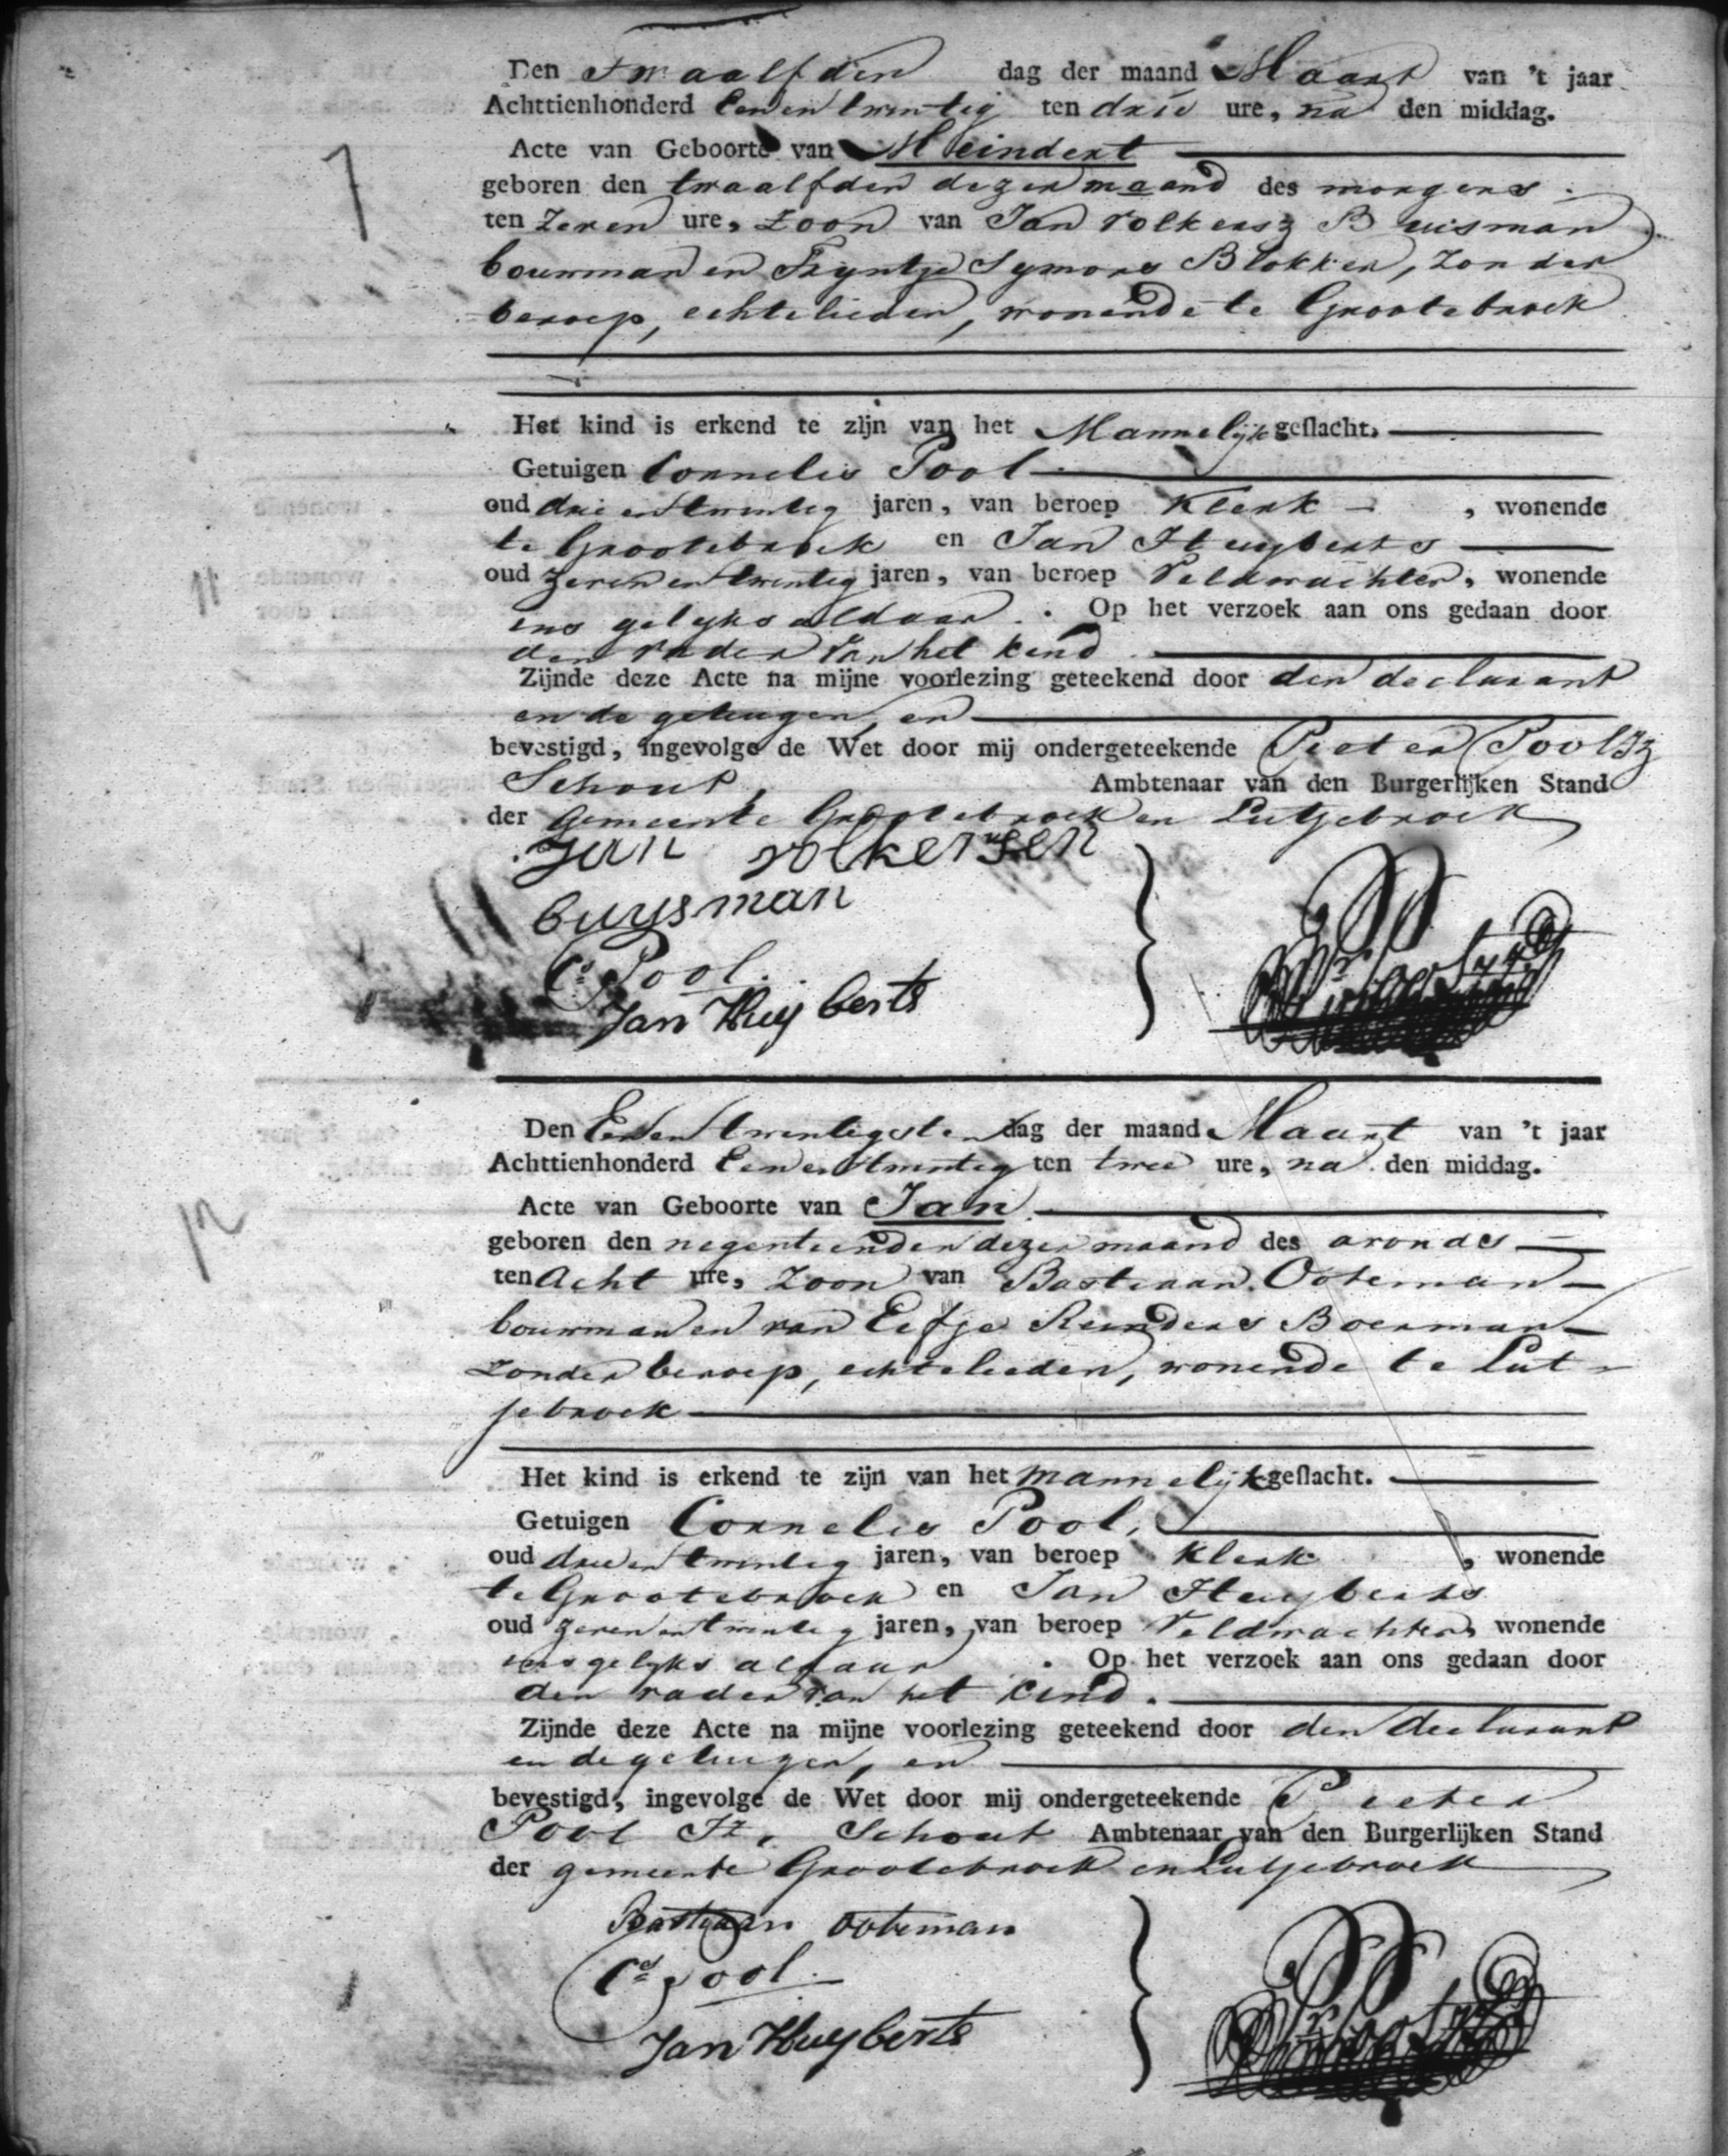 Den Twaalfden dag der maand Maart van 't jaar
Achttienhonderd Eenentwintig ten drie ure, na den middag.
Acte van Geboorte van Meindert
geboren den twaalfden dezer maand des morgens
ten Zeven ure, Zoon van Jan Volkersz Buisman
bouwman en Tryntje Symons Blokker, Zonder
beroep, echtelieden, wonende te Grootebroek
Het kind is erkend te zijn van het Mannelijk geslacht.
Getuigen Cornelis Pool
oud drie en twintig jaren, van beroep Klerk, wonende
te Grootebroek en Jan Huyberts
11
oud zeven en twintig jaren, van beroep Veldwachter, wonende
ens gelyks aldaar. Op het verzoek aan ons gedaan door
den vader van het kind
Zijnde deze Acte na mijne voorlezing geteekend door den declarant
en de getuigen, en
bevestigd, ingevolge de Wet door mij ondergeteekende Pieter Pool Jz
Schout, Ambtenaar van den Burgerlijken Stand
der Gemeente Grootebroek en Lutjebroek
Jan volkersen
buysman
Cs Pool.
Jan Huyberts
Den Eenentwintigsten dag der maand Maart van 't jaar
Achttienhonderd Eenentwintig ten twee ure, na den middag.
12
Acte van Geboorte van Jan
geboren den negentienden dezer maand des avonds
ten Acht ure, Zoon van Bastiaan Ooteman
bouwman en van Eefje Reinders Boerman
zonder beroep, echtelieden, wonende te Lut-
jebroek
Het kind is erkend te zijn van het mannelijk geslacht.
Getuigen Cornelis Pool,
oud drie en twintig jaren, van beroep Klerk, wonende
te Grootebroek en Jan Huyberts
oud zeven en twintig jaren, van beroep Veldwachter, wonende
ens gelyks aldaar. Op het verzoek aan ons gedaan door
den vader van het kind.
Zijnde deze Acte na mijne voorlezing geteekend door den declarant
en de getuigen, en
bevestigd, ingevolge de Wet door mij ondergeteekende Pieter
Pool Jz, Schout Ambtenaar van den Burgerlijken Stand
der gemeente Grootebroek en Lutjebroek
Bastiaan Ooteman
Cs Pool.
Jan Huyberts